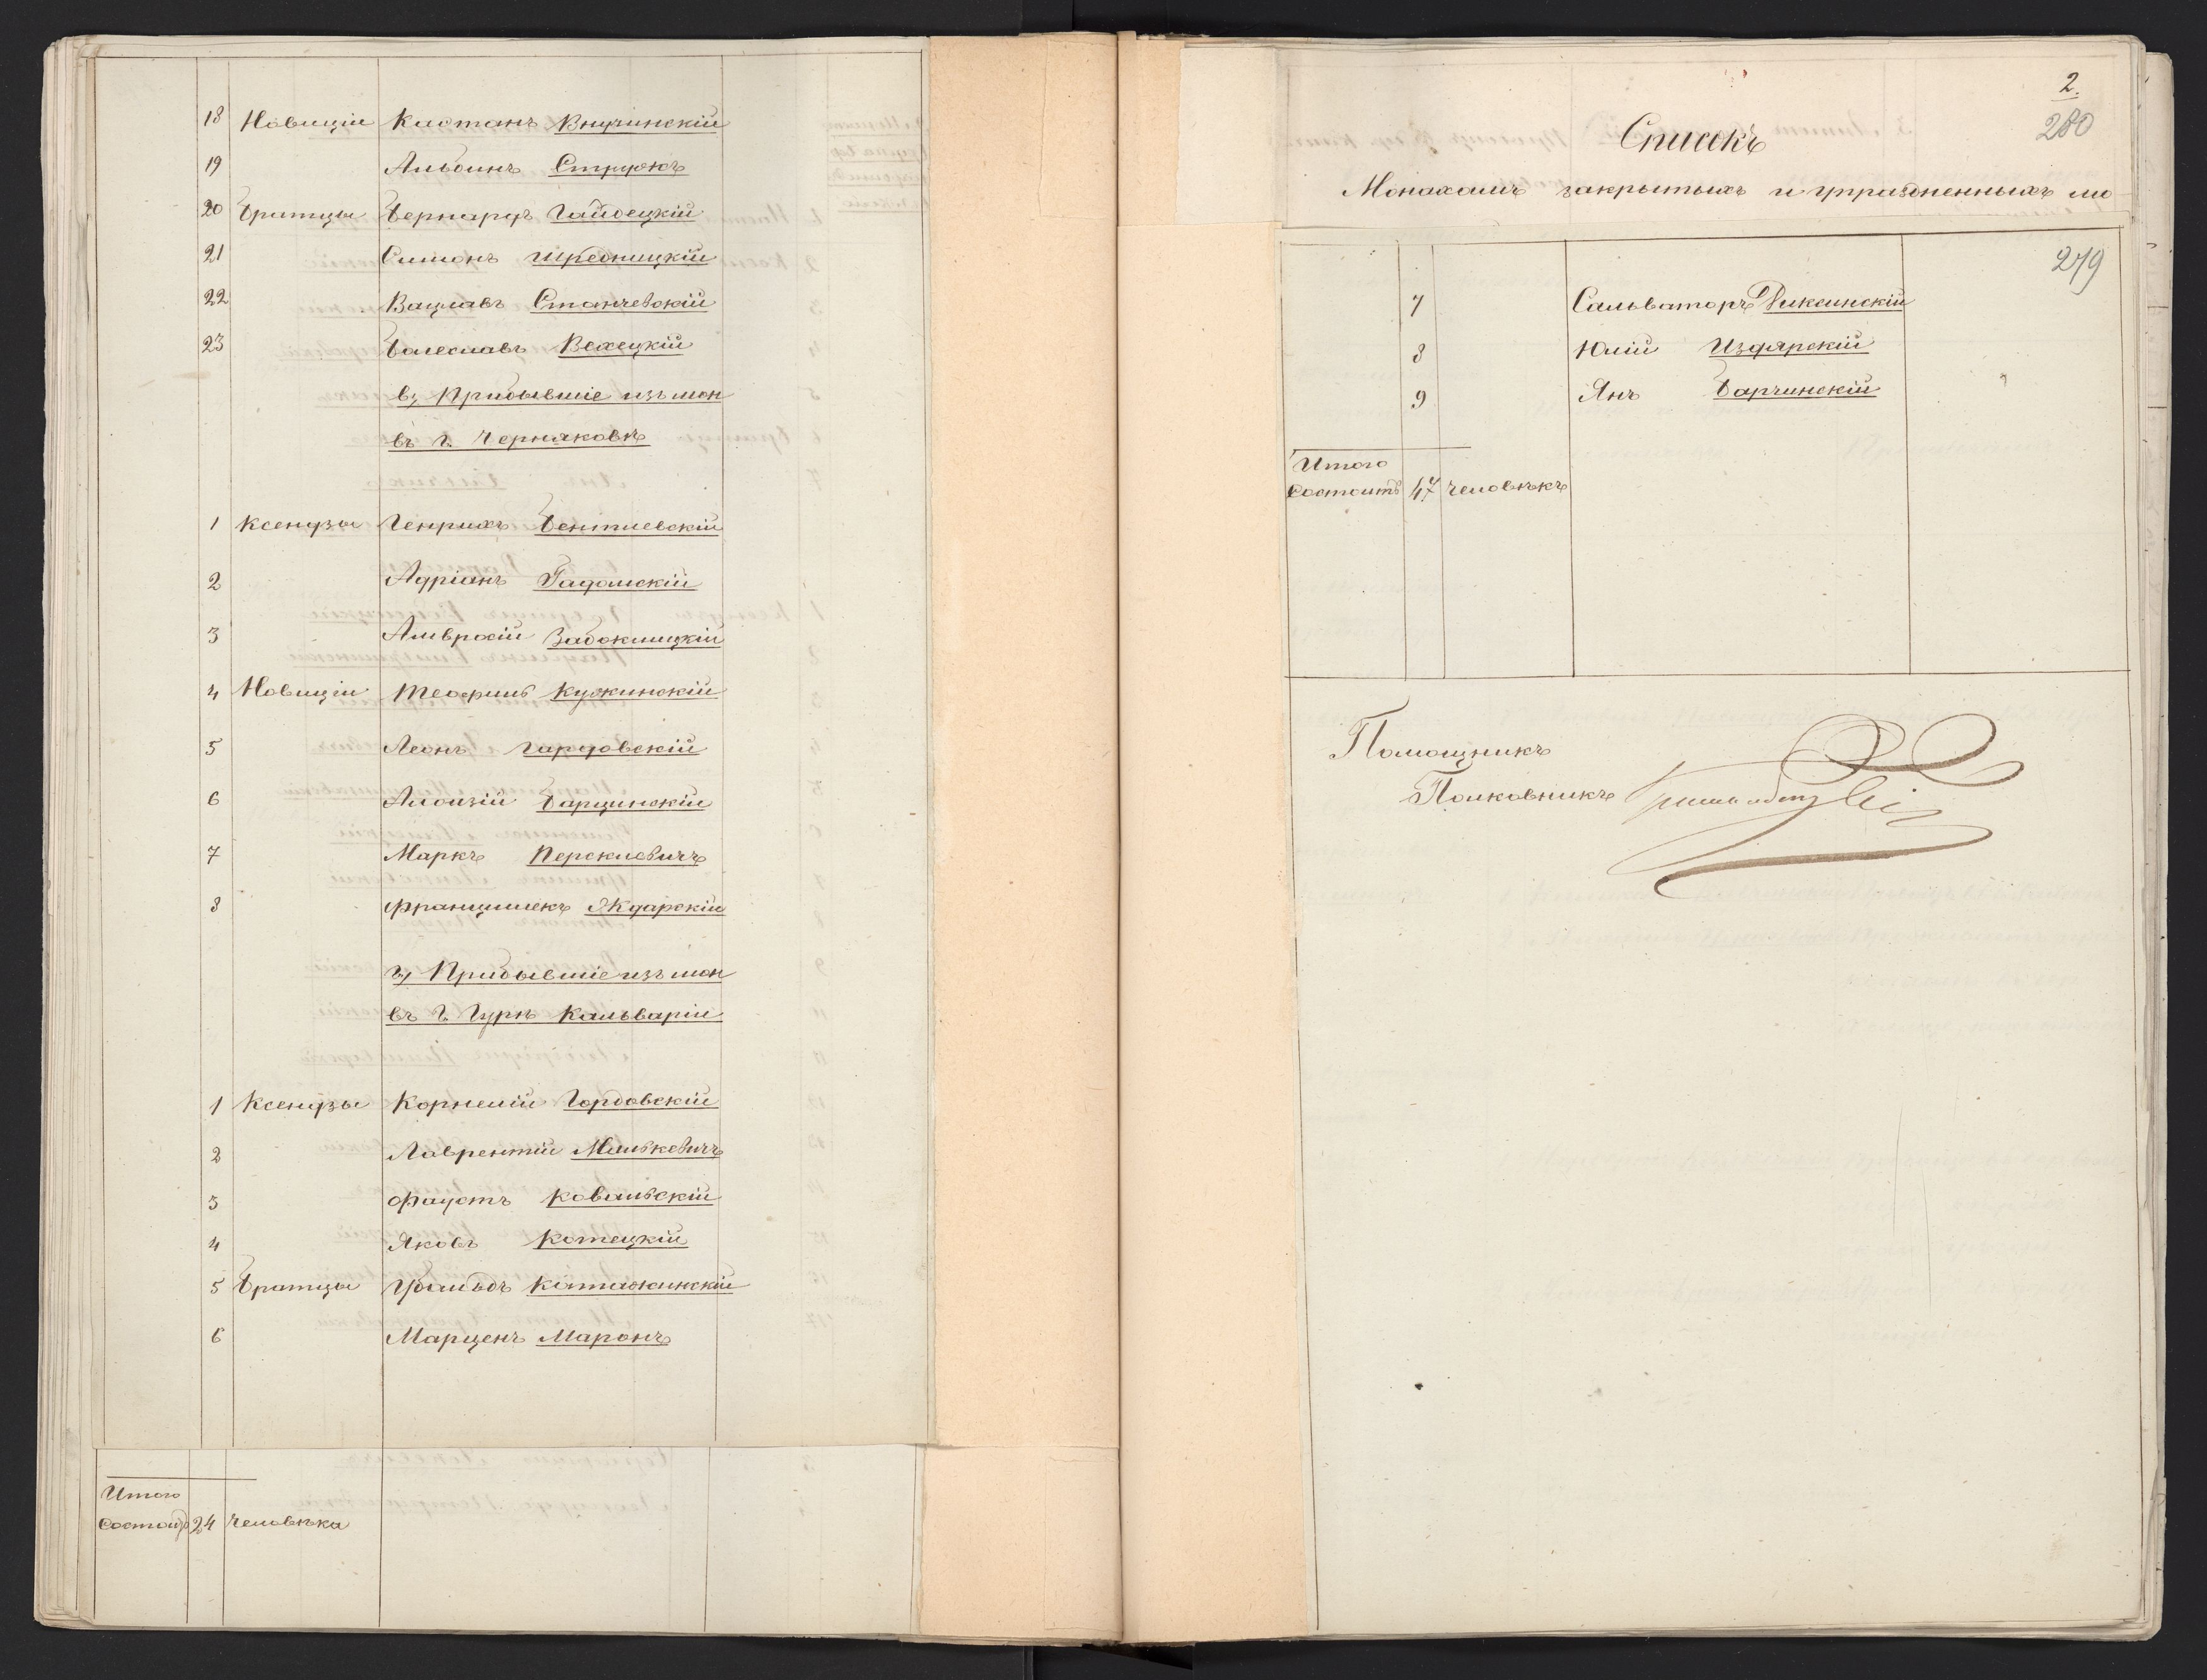 18 Новиціи Каэтанъ Внучинскій
19 Альбинъ Стружъ
20 Братцы Бернардъ Гайвецкій
21 Симонъ Шредницкій
22 Вацлавъ Станчевскій
23 Болеславъ Вехецкій
в, Прибывшіе изъ мон
въ г. Черняковѣ
1 Ксендзы Генрихъ Бентлевскій
2 Адріанъ Гадомскій
3 Амвросій Забоклицкій
4 Новиціи Теофиль Кужинскій
5 Леонъ Гардовскій
6 Алоизій Барцинскій
7 Маркъ Перскіевичъ
8 Францишекъ Ждарскій
г, Прибывшіе изъ мон
въ г. Гурѣ Кальваріи
1 Ксендзы Корнелій Гордовскій
2 Лаврентій Малькевичъ
3 Фаустъ Ковальскій
4 Яковъ Котецкій
5 Братцы Убальдъ Катажинскій
6 Марценъ Маронъ
Итого
состоитъ 24 человѣка
2.
280
Списокъ
Монахамъ закрытыхъ и упраздненныхъ мо
279
7 Сальваторъ Риксинскій
8 Юлій Издярскій
9 Янъ Барчинскій
Итого
состоитъ 47 человѣкъ
Помощникъ
Полковникъ